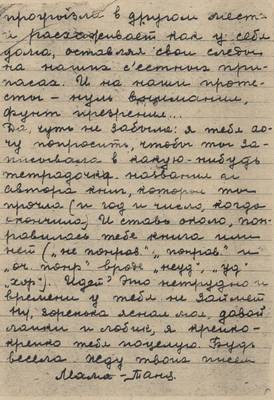 прогрызла в другом месте
и расхаживает как у себя
дома, оставляя свои следы
на наших съестных при-
пасах. И на наши проте-
сты – нуль внимания,
фунт презрения...
Да, чуть не забыла: я тебя хо-
чу попросить, чтобы ты за-
писывала в какую-нибудь
тетрадочку названия и
автора книг, которые ты
прочла (и год и число, когда
окончила) И ставь около, пон-
равилась тебе книга или
нет („не понрав.", „понрав." и
„оч. понр." вроде „неуд.", „уд."
„хор."). Идет? Это нетрудно и
времени у тебя не займет
Ну, зоренька ясная моя, давай
лапки и лобик, я крепко-
крепко тебя поцелую. Будь
весела Жду твоих писем
Мама-Таня.